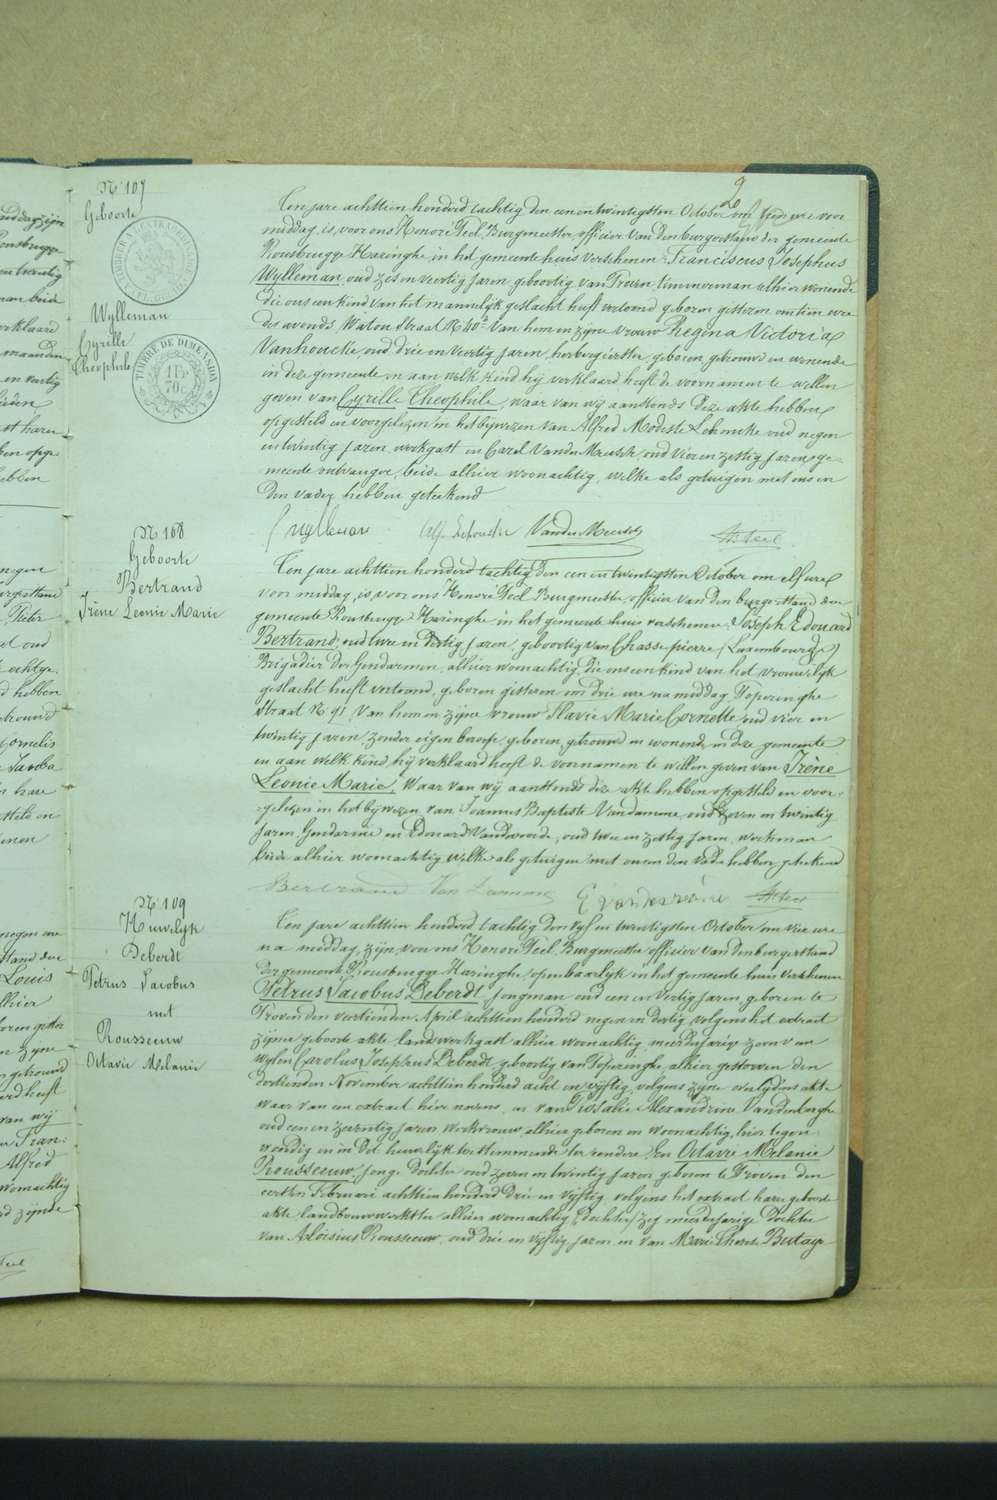 N° 107
Geboorte
Wylleman
Cyrille
Theophile
TIMBRE DE DIMENSION
1 Fr
70 c
2
Ten jare achttien honderd tachtig den een en twintigsten October om tien ure voor
middag, is, voor ons Honoré Teel, Burgmeester, officier van den burgerstand der gemeente
Rousbrugge Haringhe, in het gemeente huis verschenen: Franciscus Josephus
Wylleman, oud zes en veertig jaren, geboortig van Proven, timmerman alhier wonende
die ons een kind van het mannelyk geslacht heeft vertoond, geboren gisteren om tien ure
des avonds, Watou straat N° 40² van hem en zyne vrouw Regina Victoria
Vanhoucke, oud drie en veertig jaren, herbergierster, geboren, getrouwd en wonende
in deze gemeente en aan welk kind hy verklaard heeft de voornamen te willen
geven van Cyrille Theophile, waar van wy aanstonds deze akte hebben
opgesteld en voorgelezen in het bywezen van Alfred Modeste Lehoucke oud negen
en twintig jaren werkgast en Carel Vander Meersch, oud vier en zestig jaren, ge-
meente ontvanger, beide alhier woonachtig, welke als getuigen met ons en
den vader hebben geteekend
f wylleman Alf Lehoucke Vander Meersch H. Teel
N° 108
Geboorte
Bertrand
Irène Leonie Marie
Ten jare achttien honderd tachtig den een en twintigsten October om elf ure
voor middag, is, voor ons Honoré Teel Burgmeester, officier van den burgerstand der
gemeente Rousbrugge Haringhe in het gemeente huis verschenen: Joseph Edouard
Bertrand, oud twee en dertig jaren, geboortig van Chassepierre (Luxembourg)
Brigadier der Gendarmen, alhier woonachtig, die ons een kind van het vrouwelyk
geslacht heeft vertoond, geboren gisteren om drie ure na middag Poperinghe
straat N° 91 van hem en zyne vrouw Flavie Marie Cornette oud vier en
twintig jaren, zonder eigen beroep, geboren, getrouwd en wonende in deze gemeente
en aan welk kind hy verklaard heeft de voornamen te willen geven van Irène
Leonie Marie. Waar van wy aanstonds deze akte hebben opgesteld en voor-
gelezen in het bywezen van Joannes Baptiste Vandamme, oud zeven en twintig
jaren, Gendarme en Edouard Vandevoorde, oud twee en zestig jaren, werkman
beide alhier woonachtig welke als getuigen met ons en den vader hebben geteekend
Bertrand Van Damme H. Teel
N° 109
Huwelyk
Deberdt
Petrus Jacobus
met
Rousseeuw
Octavie Melanie
Ten jare achttien honderd tachtig den vyf en twintigsten October om vier ure
na middag, zyn, voor ons Honoré Teel, Burgmeester officier van den burgerstand
der gemeente Rousbrugge Haringhe, openbaarlyk in het gemeente huis verschenen
Petrus Jacobus Deberdt, jongman oud een en veertig jaren, geboren te
Proven den veertienden April achttien honderd negen en dertig volgens het extract
zyner geboorte akte, landwerkgast alhier woonachtig, meerderjarige zoon van
wylen Carolus Josephus Deberdt, geboortig van Poperinghe, alhier gestorven den
dertienden November achttien honderd acht en vyftig, volgens zyne overlydens akte
waar van een extract hier nevens, en van Rosalie Alexandrine Vandenberghe
oud een en zeventig jaren werkvrouw, alhier geboren en woonachtig, hier tegen-
woordig en in dit huwelyk toestemmende ter eendere. En Octavie Melanie
Rousseeuw, jonge dochter oud zeven en twintig jaren geboren te Proven den
eersten Februari achttien honderd drie en vyftig volgens het extract hare geboorte
akte landbouwwerkster alhier woonachtig, meerderjarige dochter
van Aloisius Rousseeuw, oud drie en vyftig jaren en van Marie Therese Butaye